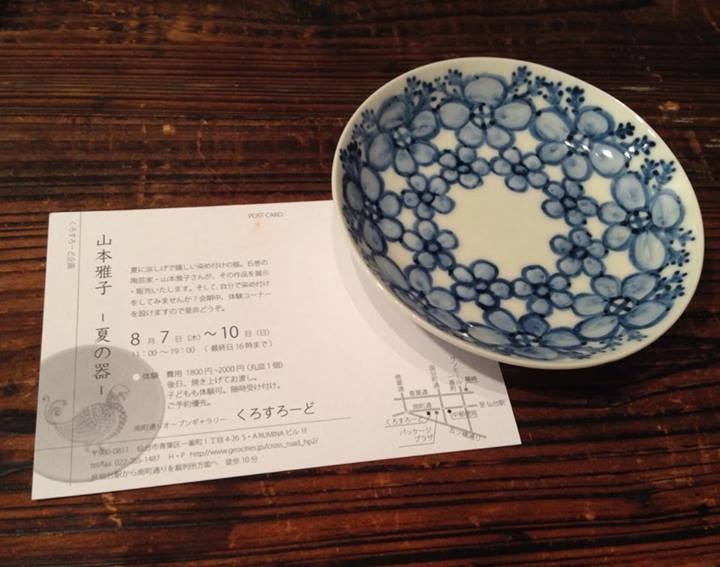 POST CARD
くろすろーど企画
山本雅子 ー夏の器ー
夏に涼しげで嬉しい染め付けの器。石巻の
陶芸家・山本雅子さんが、その作品を展示
・販売いたします。そして、自分で染め付け
をしてみませんか？会期中、体験コーナー
を設けますので是非どうぞ。
8月7日（木）～10日（日）
11：00～19：00（最終日16時まで）
体験 費用 1800円~2000円（丸皿1個）
後日、焼き上げてお渡し。
子どもも体験可。随時受け付け。
ご予約優先。
南町通りオープンギャラリー くろすろーど
〒980-0811 仙台市青葉区一番町1丁目4-26 S・A RUMINA ビル1F
tel/fax 022-265-1487 H・P http://www.geocities.jp/cross_road_hp2/
仙台駅から南町通りを裁判所方面へ 徒歩10分
青葉通
南町通
くろすろーど
パッケージ
プラザ
至仙台駅
五ツ橋通り